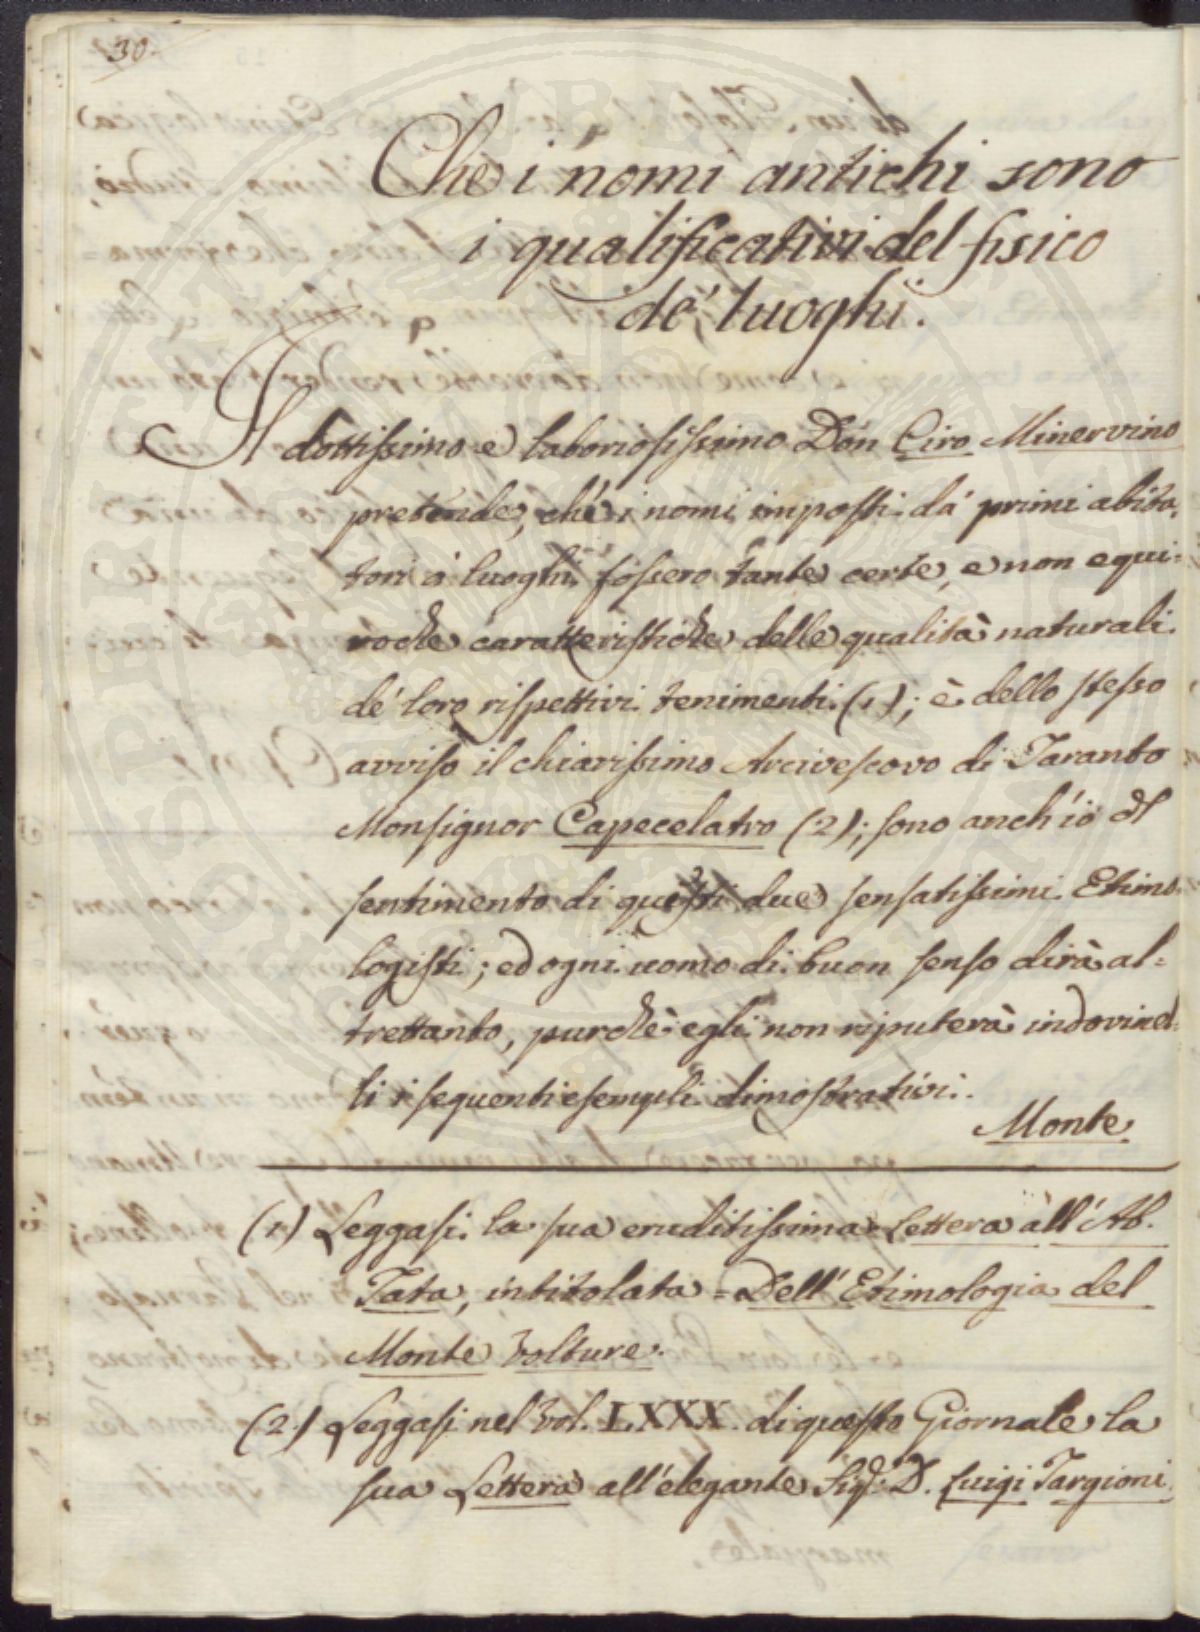 30.
Che i nomi antichi sono
i qualificativi del fisico
de' luoghi.
Il dottissimo e laboriosissimo Don Ciro Minervino
pretende, che i nomi imposti da' primi abita-
tori a' luoghi fossero tante certe, e non equi-
voche caratteristiche delle qualità naturali
de' loro rispettivi tenimenti (1); è dello stesso
avviso il chiarissimo Arcivescovo di Taranto
Monsignor Capecelatro (2); sono anch'io del
sentimento di questi due sensatissimi Etimo-
logisti; ed ogni uomo di buon senso dirà al=
trettanto, purchè egli non riputerà indovinel-
li i seguenti esempli dimostrativi.
Monte
(1) Leggasi la sua eruditissima Lettera all'Ab.
Tata, intitolata = Dell'Etimologia del
Monte Volture.
(2) Leggasi nel Vol. LXXX. di questo Giornale la
sua Lettera all'elegante Sig.r D. Luigi Targioni